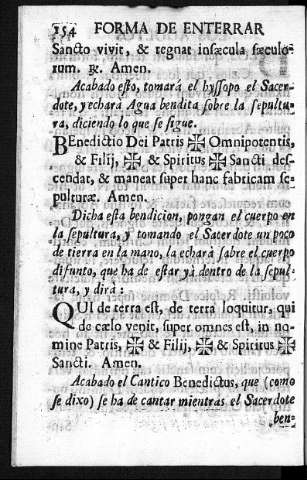 154 FORMA DE ENTERRAR
Sancto vivit, & regnat insæcula sæculo-
rum. ℟. Amen.
Acabado esto, tomará el hyssopo el Sacer-
dote, y echará Agua bendita sobre la sepultu-
ra, diciendo lo que se sigue.
BEnedictio Dei Patris ✠ Omnipotentis,
& Filij, ✠ & Spiritus ✠ Sancti des-
cendat, & maneat super hanc fabricam se-
pulturæ. Amen.
Dicha esta bendicion, pongan el cuerpo en
la sepultura, y tomando el Sacerdote un poco
de tierra en la mano, la echará sabre el cuerpo
difunto, que ha de estar yà dentro de la sepul-
tura, y dirá:
QUI de terra est, de terra loquitur, qui
de cælo venit, super omnes est, in no-
mine Patris, ✠ & Filij, ✠ & Spiritus ✠
Sancti. Amen.
Acabado el Cantico Benedictus, que (como
se dixo) se ha de cantar mientras el Sacerdote
ben-